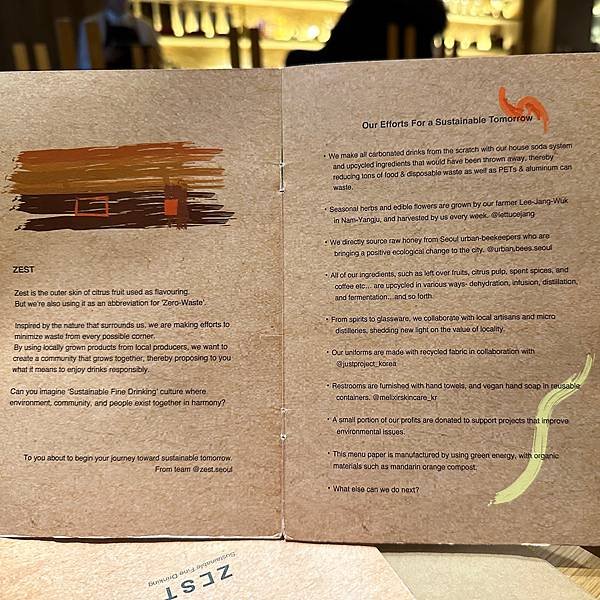 ZEST
Zest is the outer skin of citrus fruit used as flavouring.
But we're also using it as an abbreviation for 'Zero-Waste'.
Inspired by the nature that surrounds us, we are making efforts to
minimize waste from every possible corner.
By using locally grown products from local producers, we want to
create a community that grows together, thereby proposing to you
what it means to enjoy drinks responsibly.
Can you imagine 'Sustainable Fine Drinking' culture where
environment, community, and people exist together in harmony?
To you about to begin your journey toward sustainable tomorrow.
From team @zest.seoul
Our Efforts For a Sustainable Tomorrow
• We make all carbonated drinks from the scratch with our house soda system
and upcycled ingredients that would have been thrown away, thereby
reducing tons of food & disposable waste as well as PETs & aluminum can
waste.
• Seasonal herbs and edible flowers are grown by our farmer Lee-Jang-Wuk
in Nam-Yangju, and harvested by us every week. @lettucejang
• We directly source raw honey from Seoul urban-beekeepers who are
bringing a positive ecological change to the city. @urban.bees.seoul
• All of our ingredients, such as left over fruits, citrus pulp, spent spices, and
coffee etc... are upcycled in various ways- dehydration, infusion, distillation,
and fermentation...and so forth.
• From spirits to glassware, we collaborate with local artisans and micro
distilleries, shedding new light on the value of locality.
• Our uniforms are made with recycled fabric in collaboration with
@justproject_korea
• Restrooms are furnished with hand towels, and vegan hand soap in reusable
containers. @melixirskincare_kr
• A small portion of our profits are donated to support projects that improve
environmental issues.
• This menu paper is manufactured by using green energy, with organic
materials such as mandarin orange compost.
• What else can we do next?
ZEST
Sustainable Fine Drinking